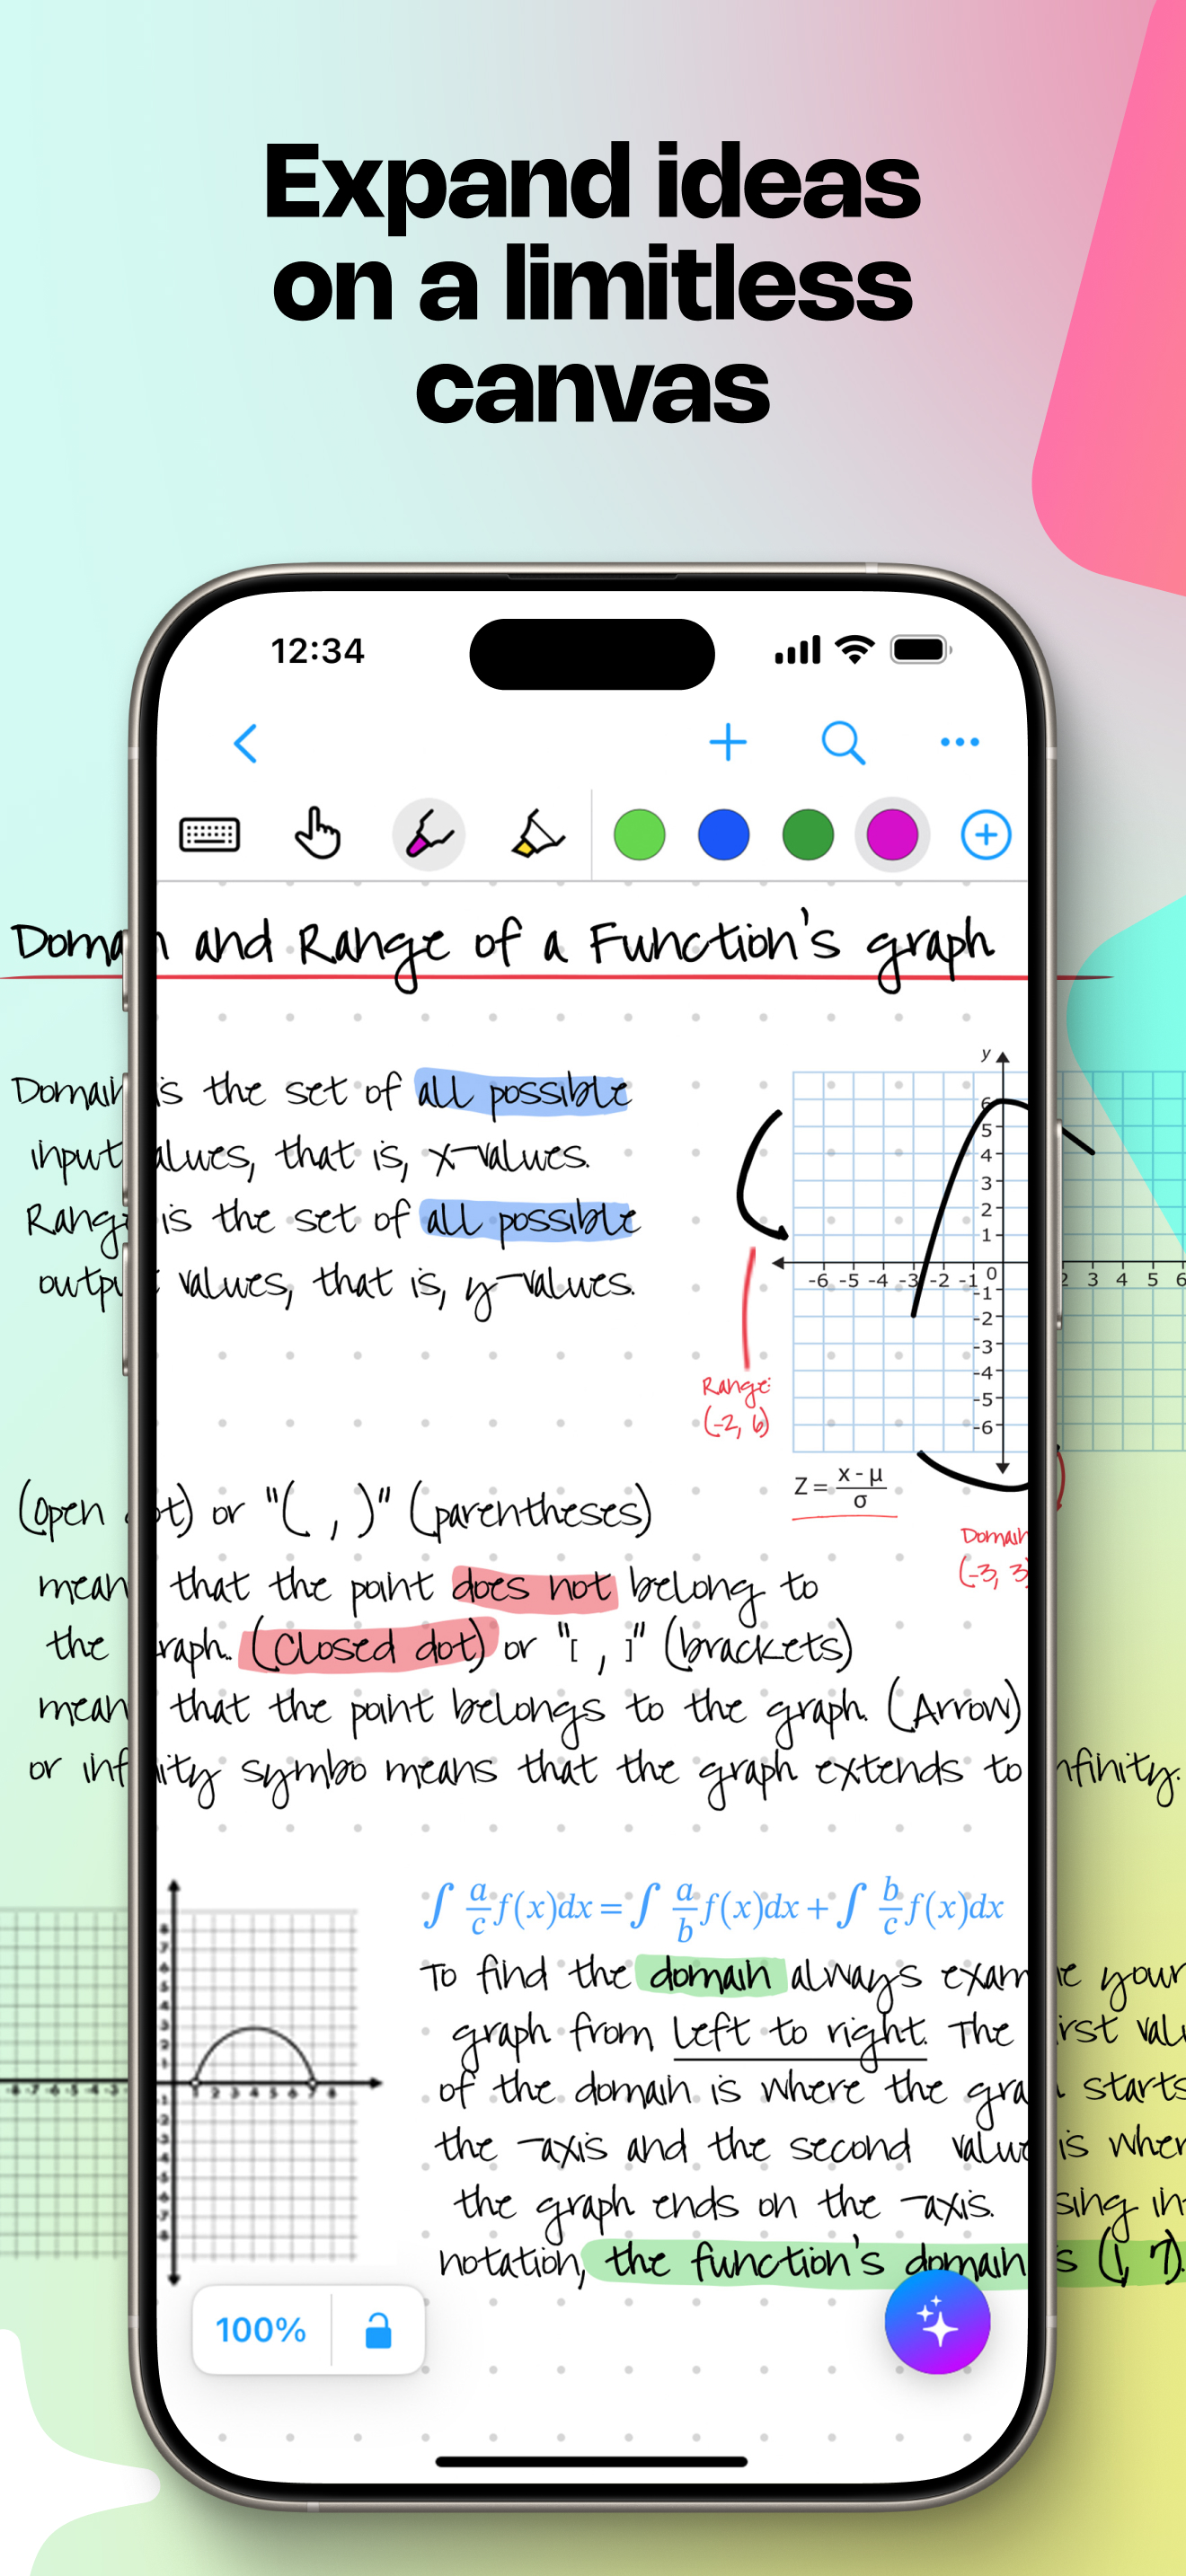 Expand ideas
on a limitless
canvas
12:34
Domain and Range of a Function's graph
Domain is the set of all possible
input values, that is, x-values.
Range is the set of all possible
output values, that is, y-values.
y
6
5
4
3
2
1
-6 -5 -4 -3 -2 -1 0 2 3 4 5 6
-1
-2
-3
-4
-5
-6
Range:
(-2, 6)
Z = x - μ / σ
Domain
(-3, 3
(open dot) or "( , )" (parentheses)
mean that the point does not belong to
the graph. (closed dot) or "[ , ]" (brackets)
mean that the point belongs to the graph. (Arrow)
or infinity symbo means that the graph extends to infinity.
∫ a/c f(x)dx = ∫ a/b f(x)dx + ∫ b/c f(x)dx
To find the domain always examine your
graph from left to right. The first valu
of the domain is where the graph starts
the -axis and the second value is wher
the graph ends on the -axis. sing in
notation, the function's domain is (1, 7).
8
7
6
5
4
3
2
1
-8 -7 -6 -5 -4 -3 2 3 4 5 6 7 8
-1
-2
-3
-4
-5
-6
-7
-8
100%